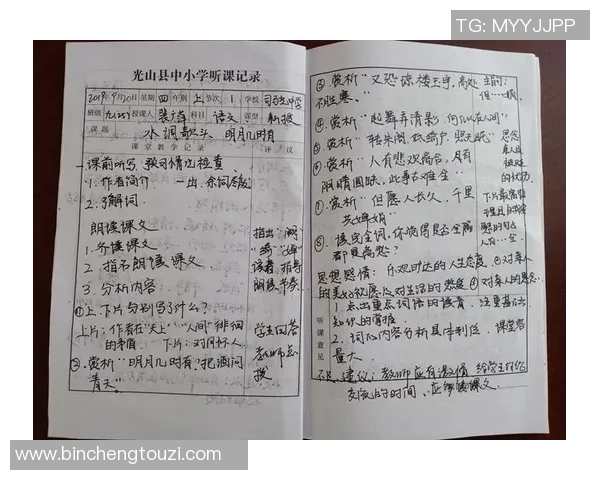 TG: MYYJJPP
光山县中小学听课记录
2019年9月20日 星期 四 年级 上 节次 1 学校
班级 九(25) 授课人 科目 语文 课型 新授
课题 水调歌头·明月几时有
课堂教学记录 评议
一课前听写、预习情况检查
1. 作者简介 一出
2. 了解词
朗读课文
1. 齐读课文 指出
2. 指名朗读课文 读音、指导
3. 分析内容 朗读节奏
①上、下片分别写了什么?
上片:作者在"天上""人间"徘徊 学生回答
的矛盾. 下片:对月怀人 教师点
②. 赏析"明月几时有,把酒问 拨
青天"
③. 赏析"又恐琼楼玉宇,高处
不胜寒."
④. 赏析"起舞弄清影,何似在人间"
⑤. 赏析"转朱阁,低绮户,照无眠" 思念
⑥. 赏析"人有悲欢离合,月有 亲人
阴晴圆缺,此事古难全"
⑦. 赏析"但愿人长久,千里
共婵娟"
⑧. 读完全词,你觉得是否全篇
都是离愁?
思想感情: 乐观旷达的人生态度 ②对亲人
的美好祝愿 对生活的热爱 ④对亲人的思念.
听课意见
1. 点出重点词语的读音 注重基础
知识的掌握
2. 词的内容分析具体到位. 课堂容
量大.
建议:教师应有激情 给学生
交流的时间、应 课文.
www.binchengtouzi.com